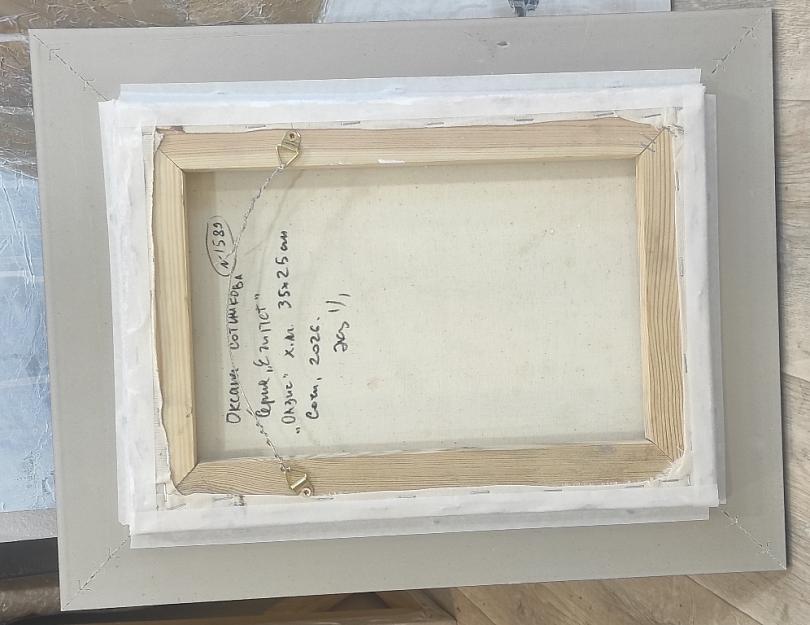 №1589
Оксана Сотникова
Серия „Египет"
„Оазис" х.м. 35х25 см
Сочи, 2026.
Экз 1/1